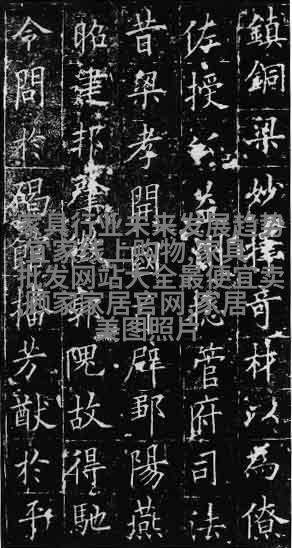 鎮銅梁妙擇奇材以為僚
佐授公益州總管府司法
昔梁孝開國首辟鄒陽燕
昭建邦肇徵郭隗故得馳
令問於碣館播芳猷於平
家具行业未来发展趋势
,宜家线上购物,家具
批发网站大全最便宜卖
,顾家家居官网,家居
美图照片